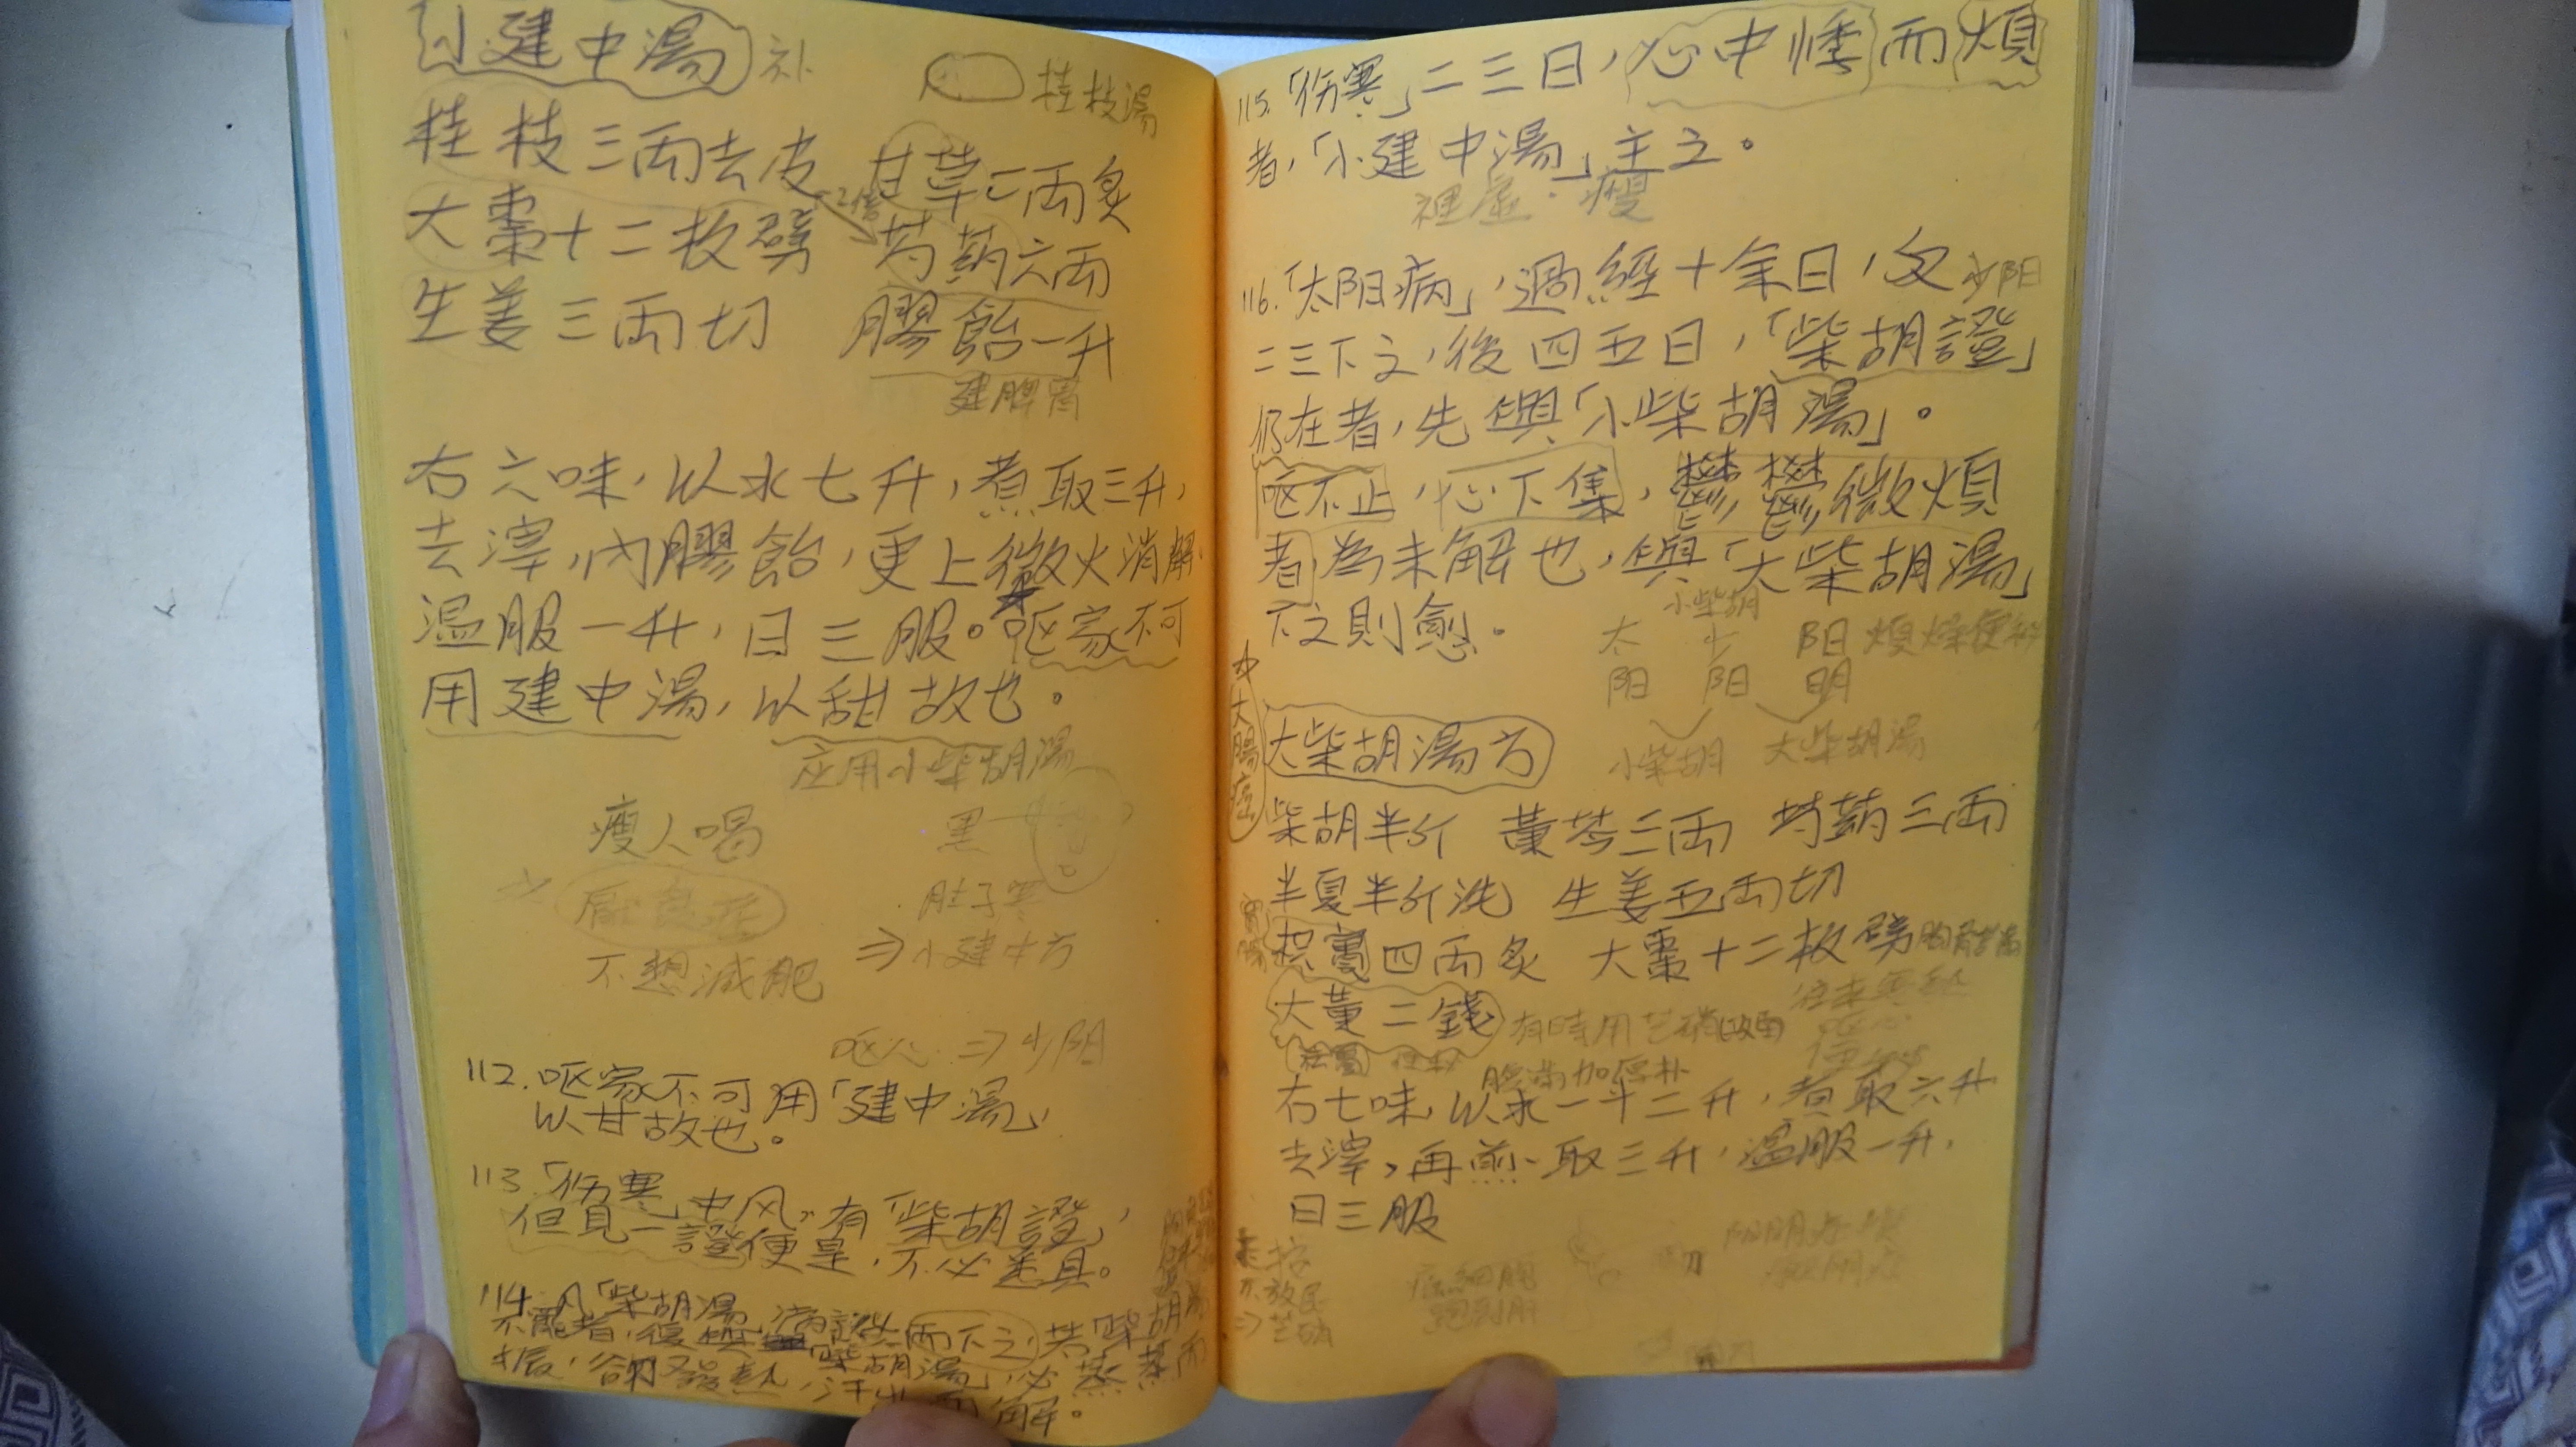 小建中湯 补
桂枝湯
桂枝三两去皮 甘草二両炙
大棗十二枚劈 2倍 芍葯六両
生姜三両切 膠飴一升
建脾胃
右六味，以水七升，煮取三升，
去滓，內膠飴，更上微火消解
温服一升，日三服。呕家不可
用建中湯，以甜故也。
应用小柴胡湯
瘦人喝 黑
肚子寒
不想減肥 ⇒小建中方
呕心 ⇒ 少阳
112. 呕家不可用「建中湯」
以甘故也。
113.「伤寒」中风”有「柴胡證」，
但見一證便是，不必悉具。
114. 凡「柴胡湯」病證 而下之，若「柴胡
不罷者，復與「柴胡湯」，必蒸蒸而
振，卻發熱，汗出而解。
115.「伤寒」二三日，心中悸而煩
者，「小建中湯」主之。
裡虛·瘦
116.「太阳病」，過經十余日，反 少阳
二三下之，後四五日，「柴胡證」
仍在者，先與「小柴胡湯」。
呕不止，心下急，鬱鬱微煩
者為未解也，與「大柴胡湯」
下之則愈。
小柴胡
太阳 少阳 阳明 煩燥便秘
小柴胡 大柴胡湯
大腸癌
大柴胡湯方
柴胡半斤 黃芩三両 芍葯三両
半夏半斤洗 生姜五両切
枳實四両炙 大棗十二枚劈
大黃二錢 有時用芒硝
腹满加厚朴
右七味，以水一斗二升，煮取六升
去滓，再煎，取三升，温服一升，
日三服
癌細胞
跑到肝
⇒芒硝